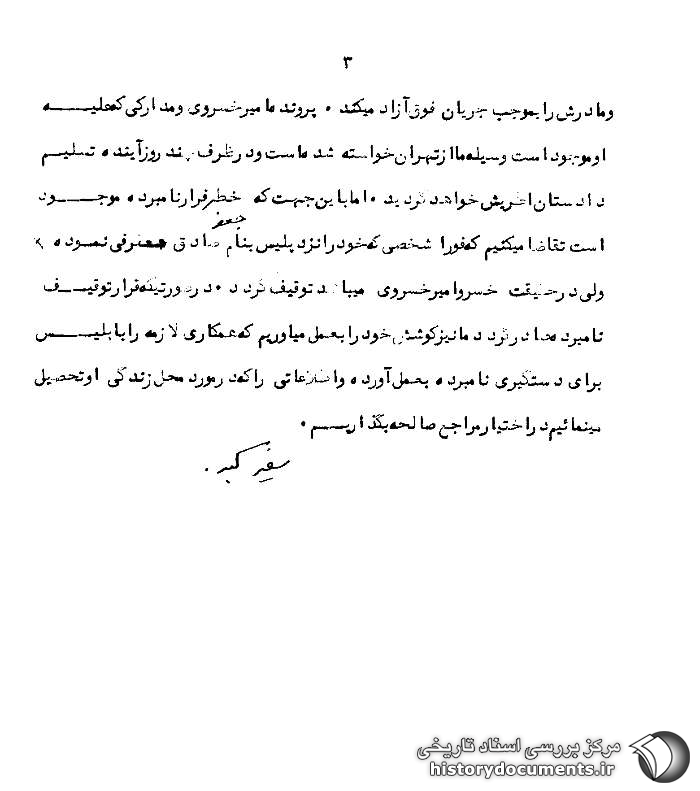 ۳
ومادرش را بموجب جریان فوق آزاد میکند • پرونده امیرخسروی ومدارکی که علیه
او موجود است وسیله ما از تهران خواسته شده است ودر ظرف چند روز آینده تسلیم
دادستان اطریش خواهد گردید • اما باین جهت که خطر فرار نامبرده موجود
جعفر
است تقاضا میکنیم که فورا شخصی که خود را نزد پلیس بنام صادقی معرفی نموده
ولی در حقیقت خسرو امیرخسروی میباشد توقیف گردد • در صورتیکه قرار توقیف
نامبرده صادر گردد ما نیز کوشش خود را بعمل میاوریم که همکاری لازمه را با پلیس
برای دستگیری نامبرده بعمل آورده واطلاعاتی راکه در مورد محل زندگی او تحصیل
مینمائیم در اختیار مراجع صالحه بگذاریم •
سفیر کبیر .
مرکز بررسی اسناد تاریخی
historydocuments.ir